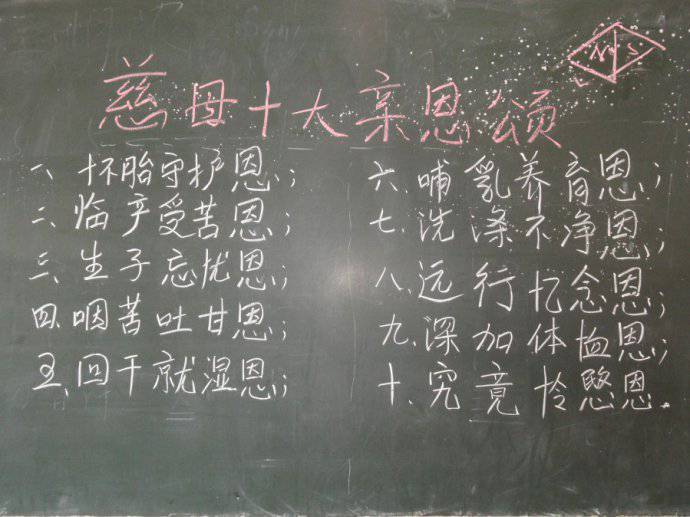 慈母十大亲恩颂
一、怀胎守护恩;
二、临产受苦恩;
三、生子忘忧恩;
四、咽苦吐甘恩;
五、回干就湿恩;
六、哺乳养育恩;
七、洗涤不净恩;
八、远行忆念恩;
九、深加体恤恩;
十、究竟怜愍恩.